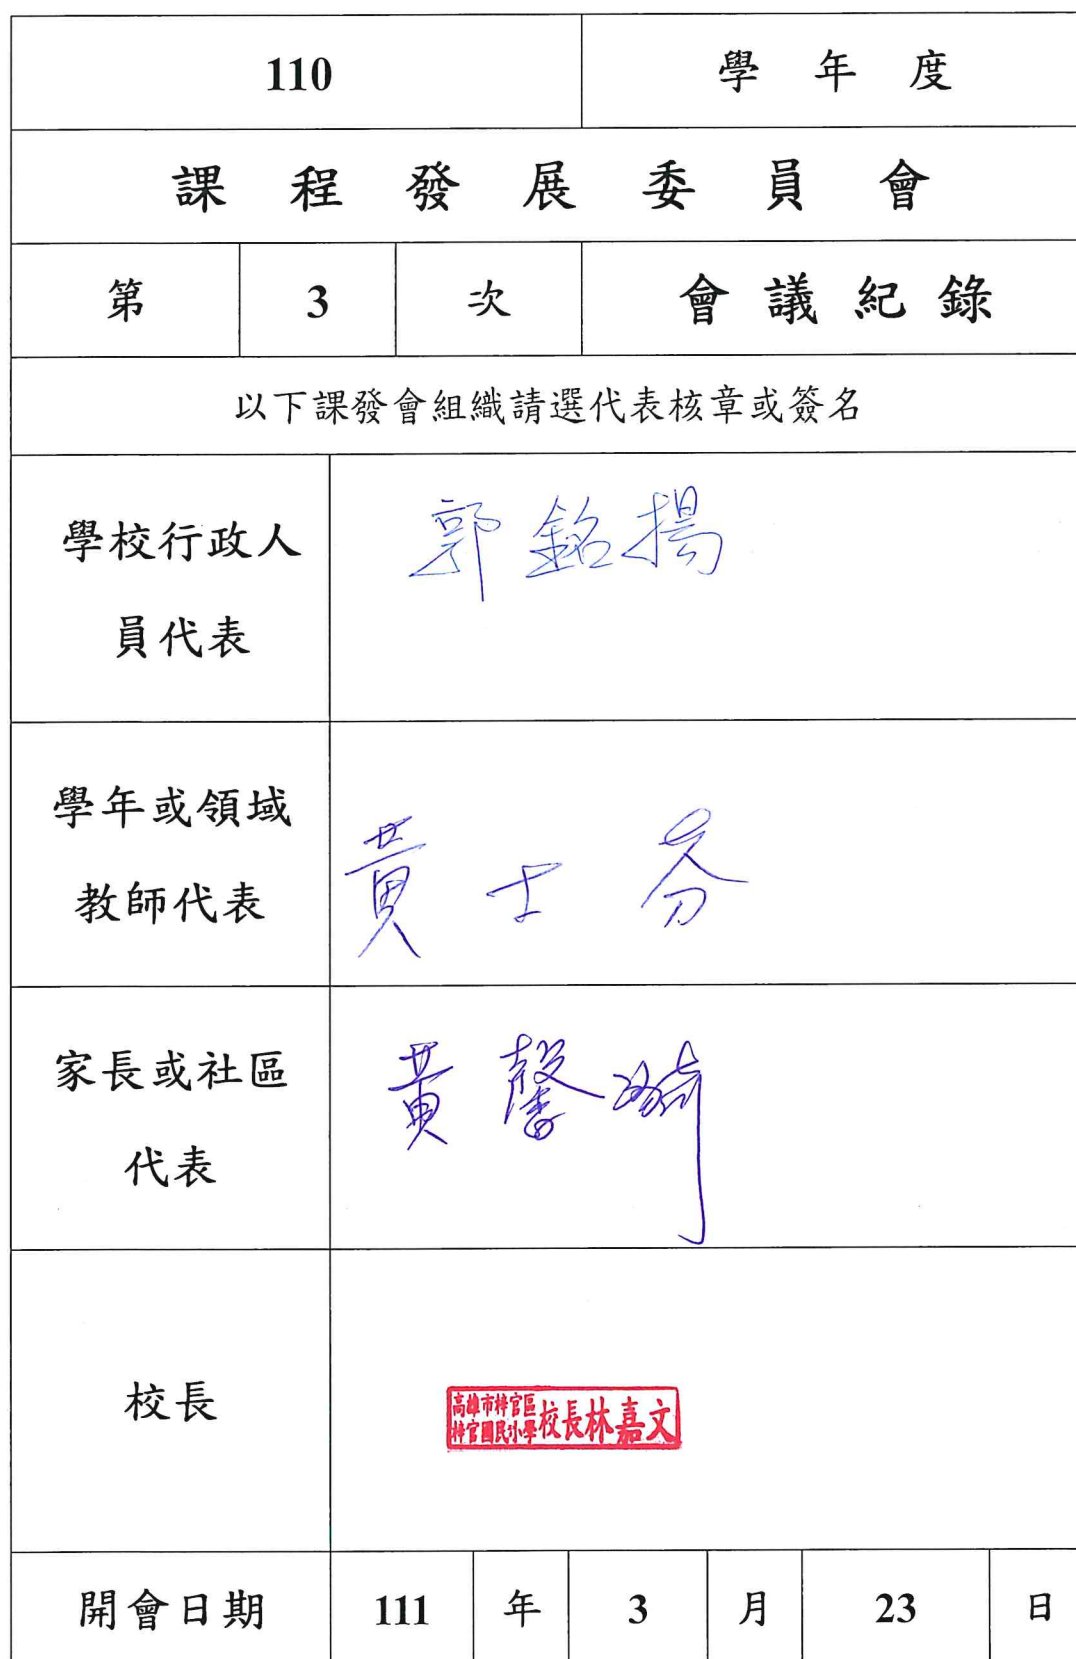 110 學年度
課程發展委員會
第 3 次 會議紀錄
以下課發會組織請選代表核章或簽名
學校行政人
員代表
郭銘揚
學年或領域
教師代表
黃士芬
家長或社區
代表
黃馨
校長
高雄市梓官區
梓官國民小學
校長林嘉文
開會日期 111 年 3 月 23 日